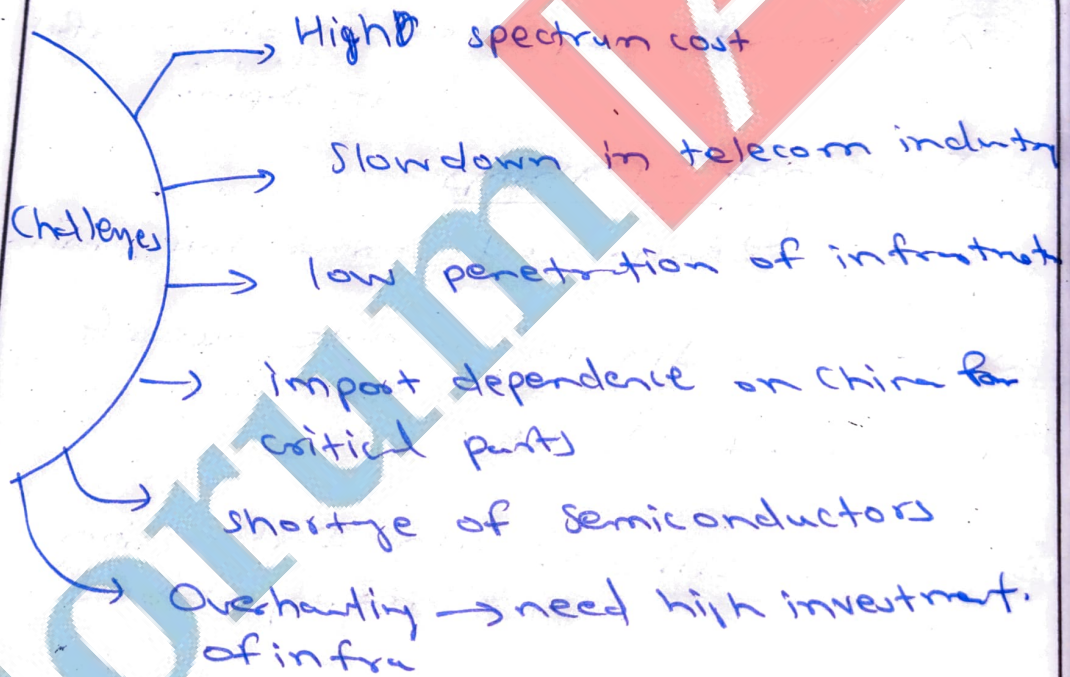 High spectrum cost
Slowdown in telecom industry
Challenges
low penetration of infrastruct
import dependence on China for
critical parts
shortage of semiconductors
Overhauling → need high investment.
of infra
orum